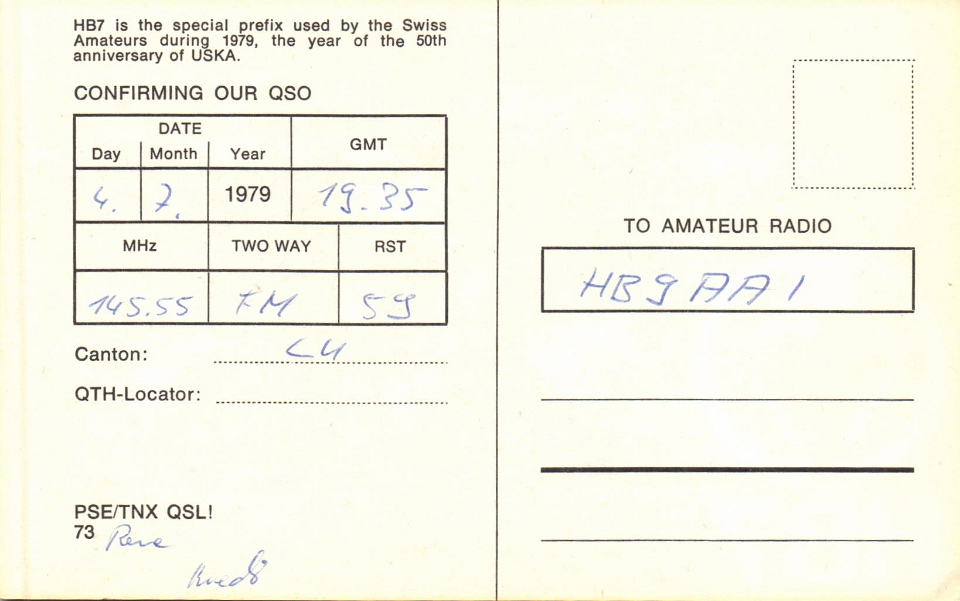 HB7 is the special prefix used by the Swiss
Amateurs during 1979, the year of the 50th
anniversary of USKA.
CONFIRMING OUR QSO
DATE
GMT
Day Month Year
4. 7. 1979 19.35
MHz TWO WAY RST
145.55 FM 59
Canton: LU
QTH-Locator:
PSE/TNX QSL!
73 Rene
TO AMATEUR RADIO
HB9AAI